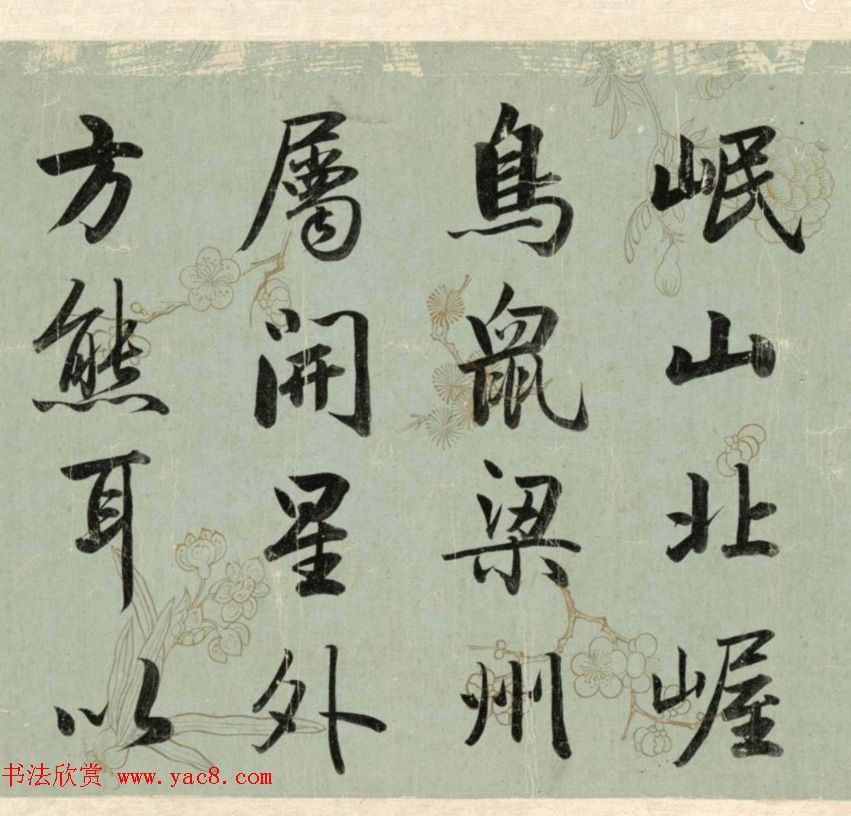 岷山北崛
鳥鼠梁州
屬開星外
方熊耳以
书法欣赏 www.yac8.com